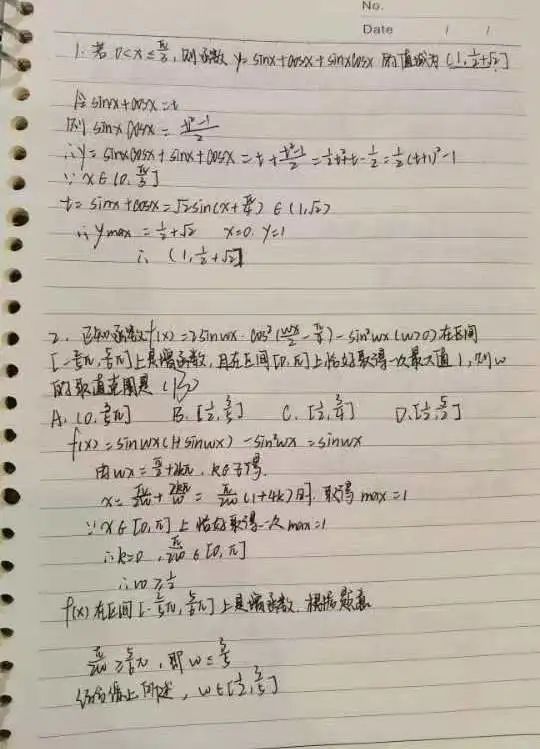 No.
Date / /
1. 若 0<x≤π/3, 则函数 y=sinx+cosx+sinxcosx 的值域为 (1, 1/2+√2]
令 sinx+cosx=t
则 sinx cosx = (t²-1)/2
∴y=sinxcosx+sinx+cosx=t+(t²-1)/2=1/2t²+t-1/2=1/2(t+1)²-1
∵ x∈(0, π/3]
t=sinx+cosx=√2sin(x+π/4)∈(1,√2)
∴ymax=1/2+√2 x=0. y=1
∴ (1, 1/2+√2]
2. 已知函数f(x)=2sinwx·cos²(wx/2-π/4)-sin²wx(w>0)在区间
上是增函数, 且在区间[0,π]上恰好取得一次最大值1, 则w
的取值范围是 (B)
A. (0, 3/5] B. [1/2, 3/5] C. [1/2, 3/4] D. [1/2, 5/2]
f(x)=sinwx(1+sinwx)-sin²wx=sinwx
由wx=π/2+2kπ, k∈Z得.
x=π/2w+2kπ/w=π/2w(1+4k)时. 取得max=1
∵x∈[0,π]上恰好取得一次max=1
∴k=0, π/2w∈[0,π]
∴w≥1/2
f(x)在区间 上是增函数. 根据题意
π/2w≥5/6π, 即w≤3/5
综合以上所述, w∈[1/2, 3/5]